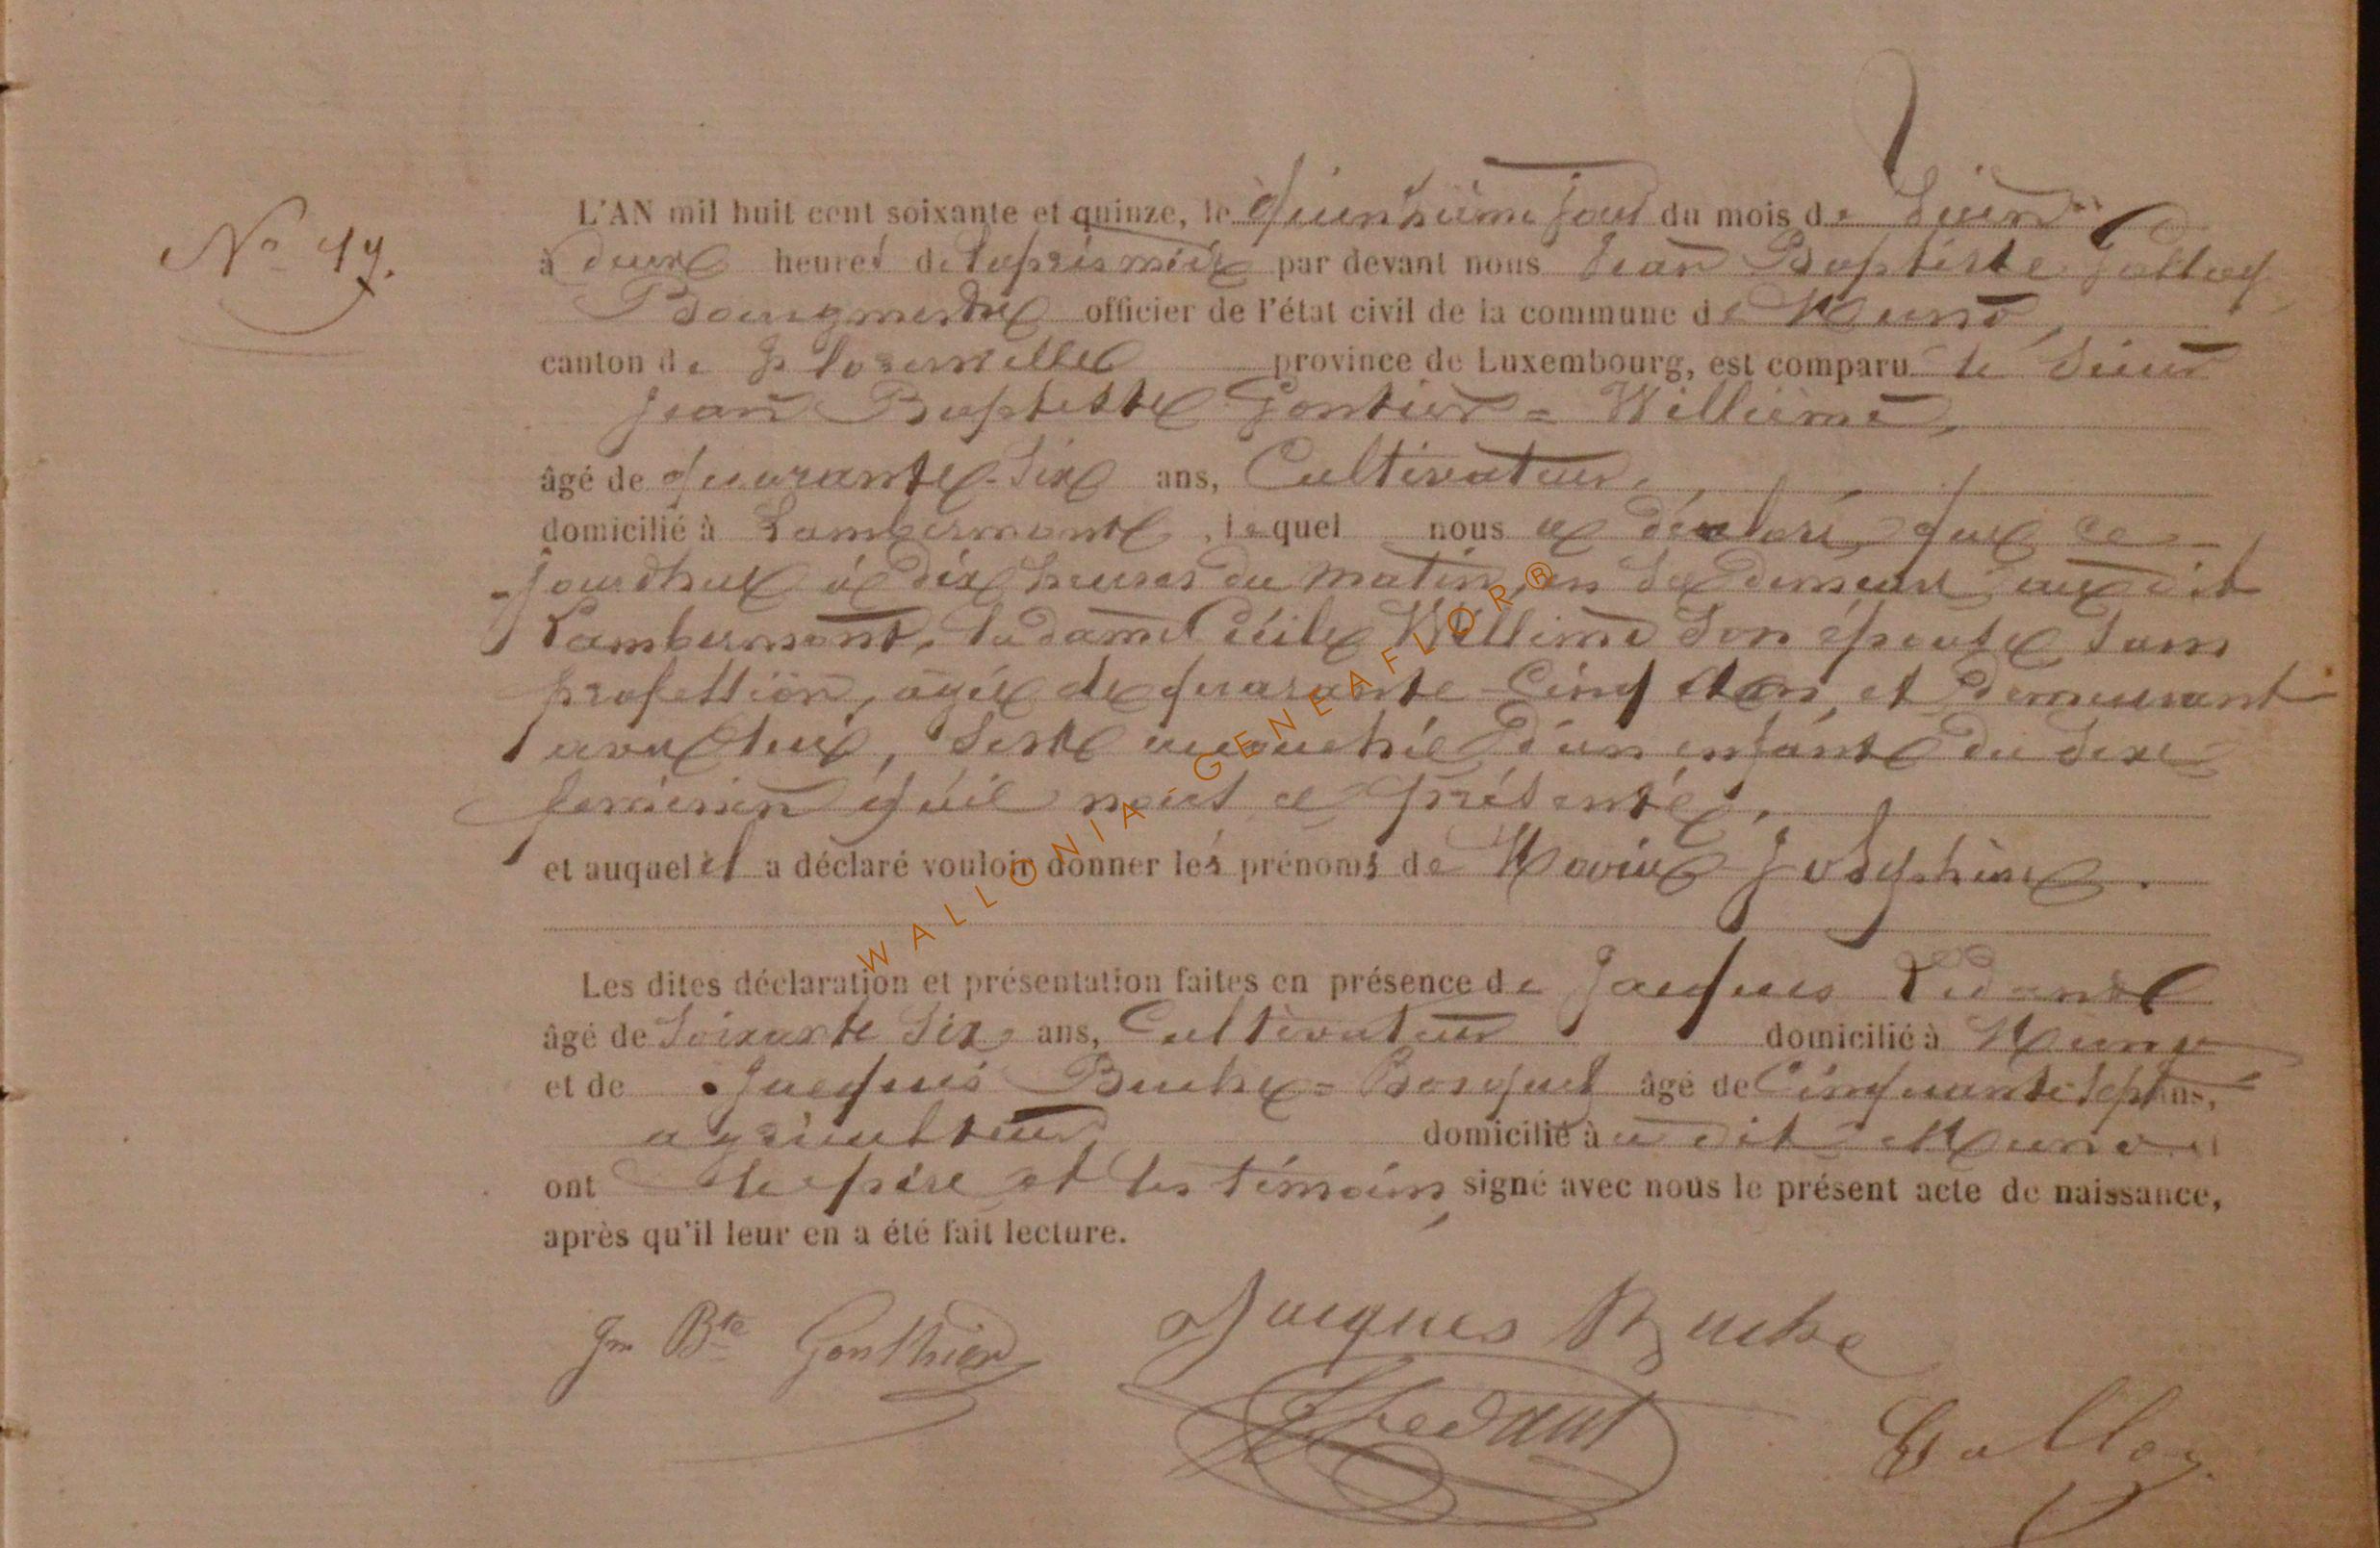 N° 19.
L'AN mil huit cent soixante et quinze, le quinzième jour du mois de Juin
à deux heures de l'après midi par devant nous Jean Baptiste Golloy
Bourgmestre officier de l'état civil de la commune de Muno,
canton de Florenville province de Luxembourg, est comparu le Sieur
Jean Baptiste Gontier = Willième,
âgé de quarante-Six ans, Cultivateur,
domicilié à Lambermont, lequel nous a déclaré que ce-
-jourdhui à dix heures du matin, en Sa demeure au dit
Lambermont, la dame Cécile Willième Son épouse, Sans
profession, agée de quarante-Cinq ans, et demeurant
avec lui, S'est accouchée d'un enfant du Sexe
feminin qu'il nous a présenté,
et auquel il a déclaré vouloir donner les prénoms de Marie Joséphine.
Les dites déclaration et présentation faites en présence de Jacques Ledant
âgé de Soixante Six ans, Cultivateur domicilié à Muno
et de Jacques Buche = Bosquet âgé de Cinquante-Sept ans,
agriculteur domicilié à u dit Muno
ont le père et les témoins, signé avec nous le présent acte de naissance,
après qu'il leur en a été fait lecture.
Jn Bte Gonthier Jacques Buche
Ledant
Golloy
WALLONIA-GENEAFLOR®